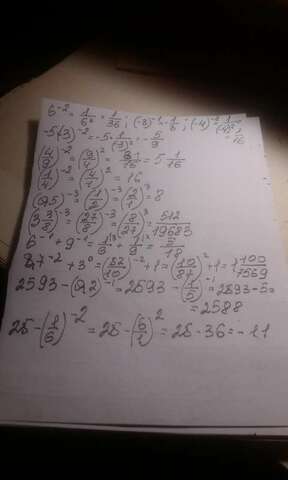 6⁻² = 1/6² = 1/36; (-8)⁻¹ = -1/8; (-4)⁻² = 1/(-4)² = 1/16
-5·(3)⁻² = -5·1/(-3)² = -5/9
(4/9)⁻² = (9/4)² = 81/16 = 5 1/16
(1/4)⁻² = (4/1)² = 16
(0,5)⁻³ = (1/2)⁻³ = (2/1)³ = 8
(3 3/8)⁻³ = (27/8)⁻³ = (8/27)³ = 512/19683
6⁻¹ + 9⁻¹ = 1/6 + 1/9 = 5/18
8,7⁻² + 3⁰ = (87/10)⁻² + 1 = (10/87)² + 1 = 1 100/7569
2593 - (0,2)⁻¹ = 2593 - (1/5)⁻¹ = 2593 - 5 =
= 2588
25 - (1/6)⁻² = 25 - (6/1)² = 25 - 36 = -11